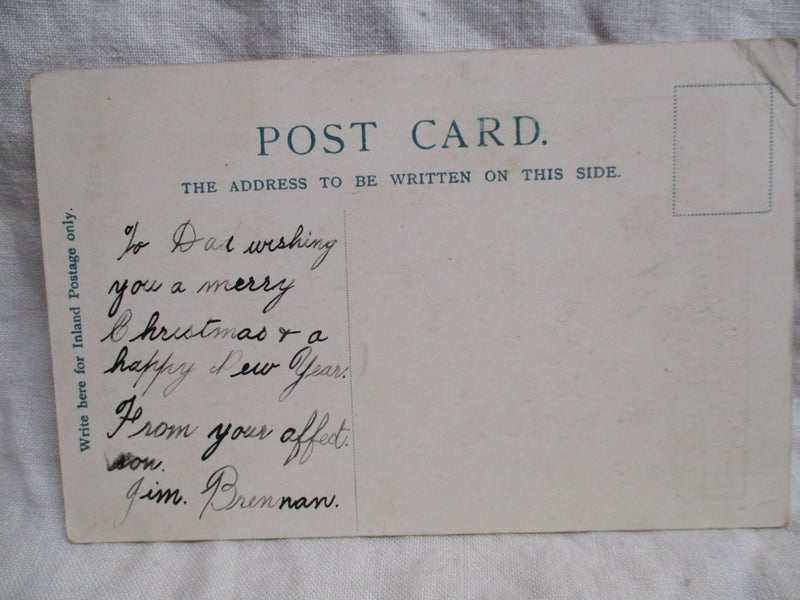 POST CARD.
THE ADDRESS TO BE WRITTEN ON THIS SIDE.
Write here for Inland Postage only.
To Dad wishing
you a merry
Christmas & a
happy New Year.
From your affect.
son.
Jim. Brennan.